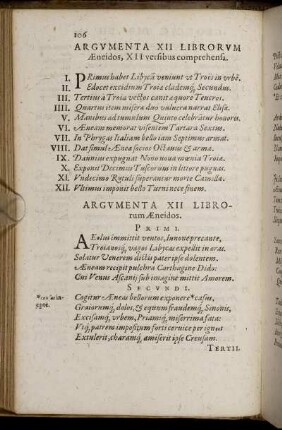 106
ARGVMENTA XII LIBRORVM
Æneidos, XII versibus comprehensa.
I. PRimus habet Libycā veniant vt Troës in vrbē.
II. Edocet excidium Troiæ clademq́, Secundus.
III. Tertius à Troia vectos canit æquore Teucros.
IIII. Quartus item miseræ duo vulnera narrat Elisæ.
V. Manibus ad tumulum Quinto celebrātur honores.
VI. Æneam memorat visentem Tartara Sextus.
VII. In Phrygas Italiam bello iam Septimus armat.
VIII. Dat simul Æneæ socios Octauus & arma.
IX. Daunius expugnat Nono noua mœnia Troiæ.
X. Exponit Decimus Tuscorum in littore pugnas.
XI. Vndecimo Rutuli superantur morte Camillæ.
XII. Vltimus imponit bello Turni nece finem.
ARGVMENTA XII LIBRO-
rum Æneidos.
PRIMI.
AEolus immittit ventos, Iunone precante,
Troianisq́, vagos Libycas expellit in oras.
Solatur Venerem dictis pater ipse dolentem.
Æneam recipit pulchra Carthagine Dido:
Cui Venus Ascanij sub imagine mittit Amorem.
SECVNDI.
Cogitur Æneas bellorum exponere * casus,
Graiorumq́, dolos, & equum fraudemq́, Sinonis,
Excisamq́, vrbem, Priamiq́, miserrima fata:
Vtq́, patrem impositum forti ceruice per ignes
Extulerit, charamq́, amiserit ipse Creusam.
TERTII.